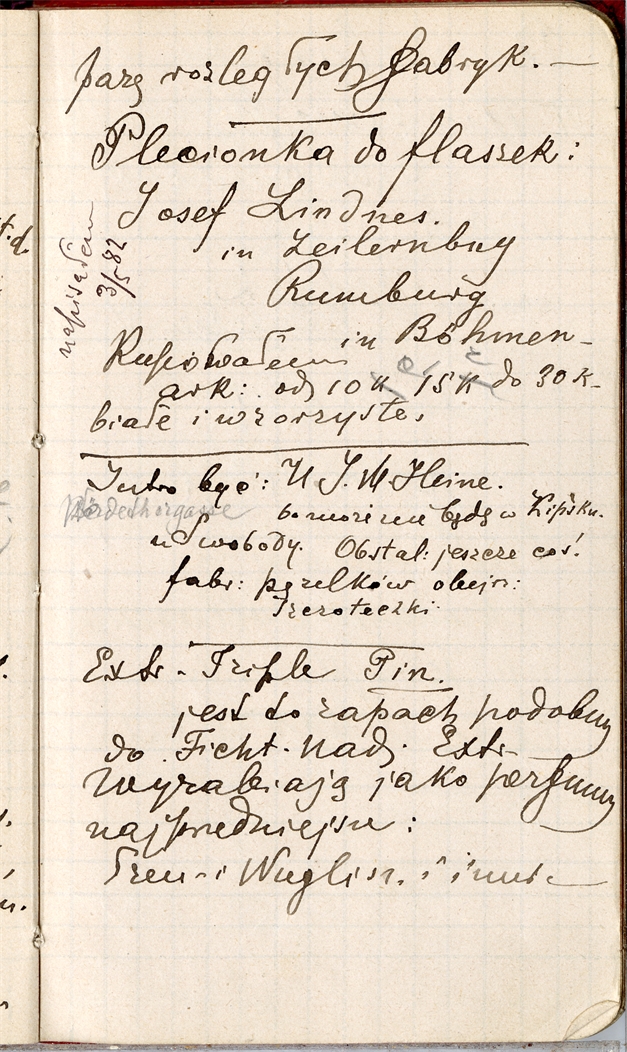 parę rozległych fabryk. —
Plecionka do flaszek:
Josef Lindnes.
in Zeilernbug
Rumburg
in Böhmen
napisałem
3/5 82
Kupowałem
ark: od 10 K 15 K do 30 K
białe i wzorzyste.
Jutro być: U J. M. Heine.
bo może nie będą w Lipsku.
u Swobody. Obstal: jeszcze coś!
fabr: perełków obejrz:
Szczoteczki
Extr. Triple Pin.
jest to zapach podobny
do Ficht. Nadj. Extr.
Wyrabiają jako perfumy
najprzedniejsze:
i inni